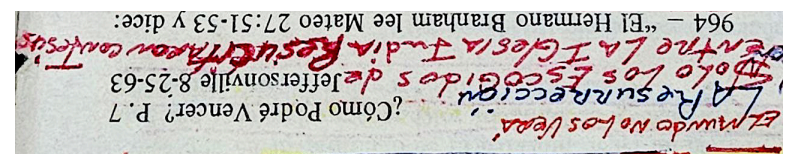 El mundo no los verá
¿Cómo Podré Vencer? P. 7
LA RESURRECCIÓN
Jeffersonville 8-25-63
SOLO LOS ESCOGIDOS de
ENTRE LA IGLESIA JUDIA RESUCITARON CON JESUS
964 – “El Hermano Branham lee Mateo 27:51-53 y dice: